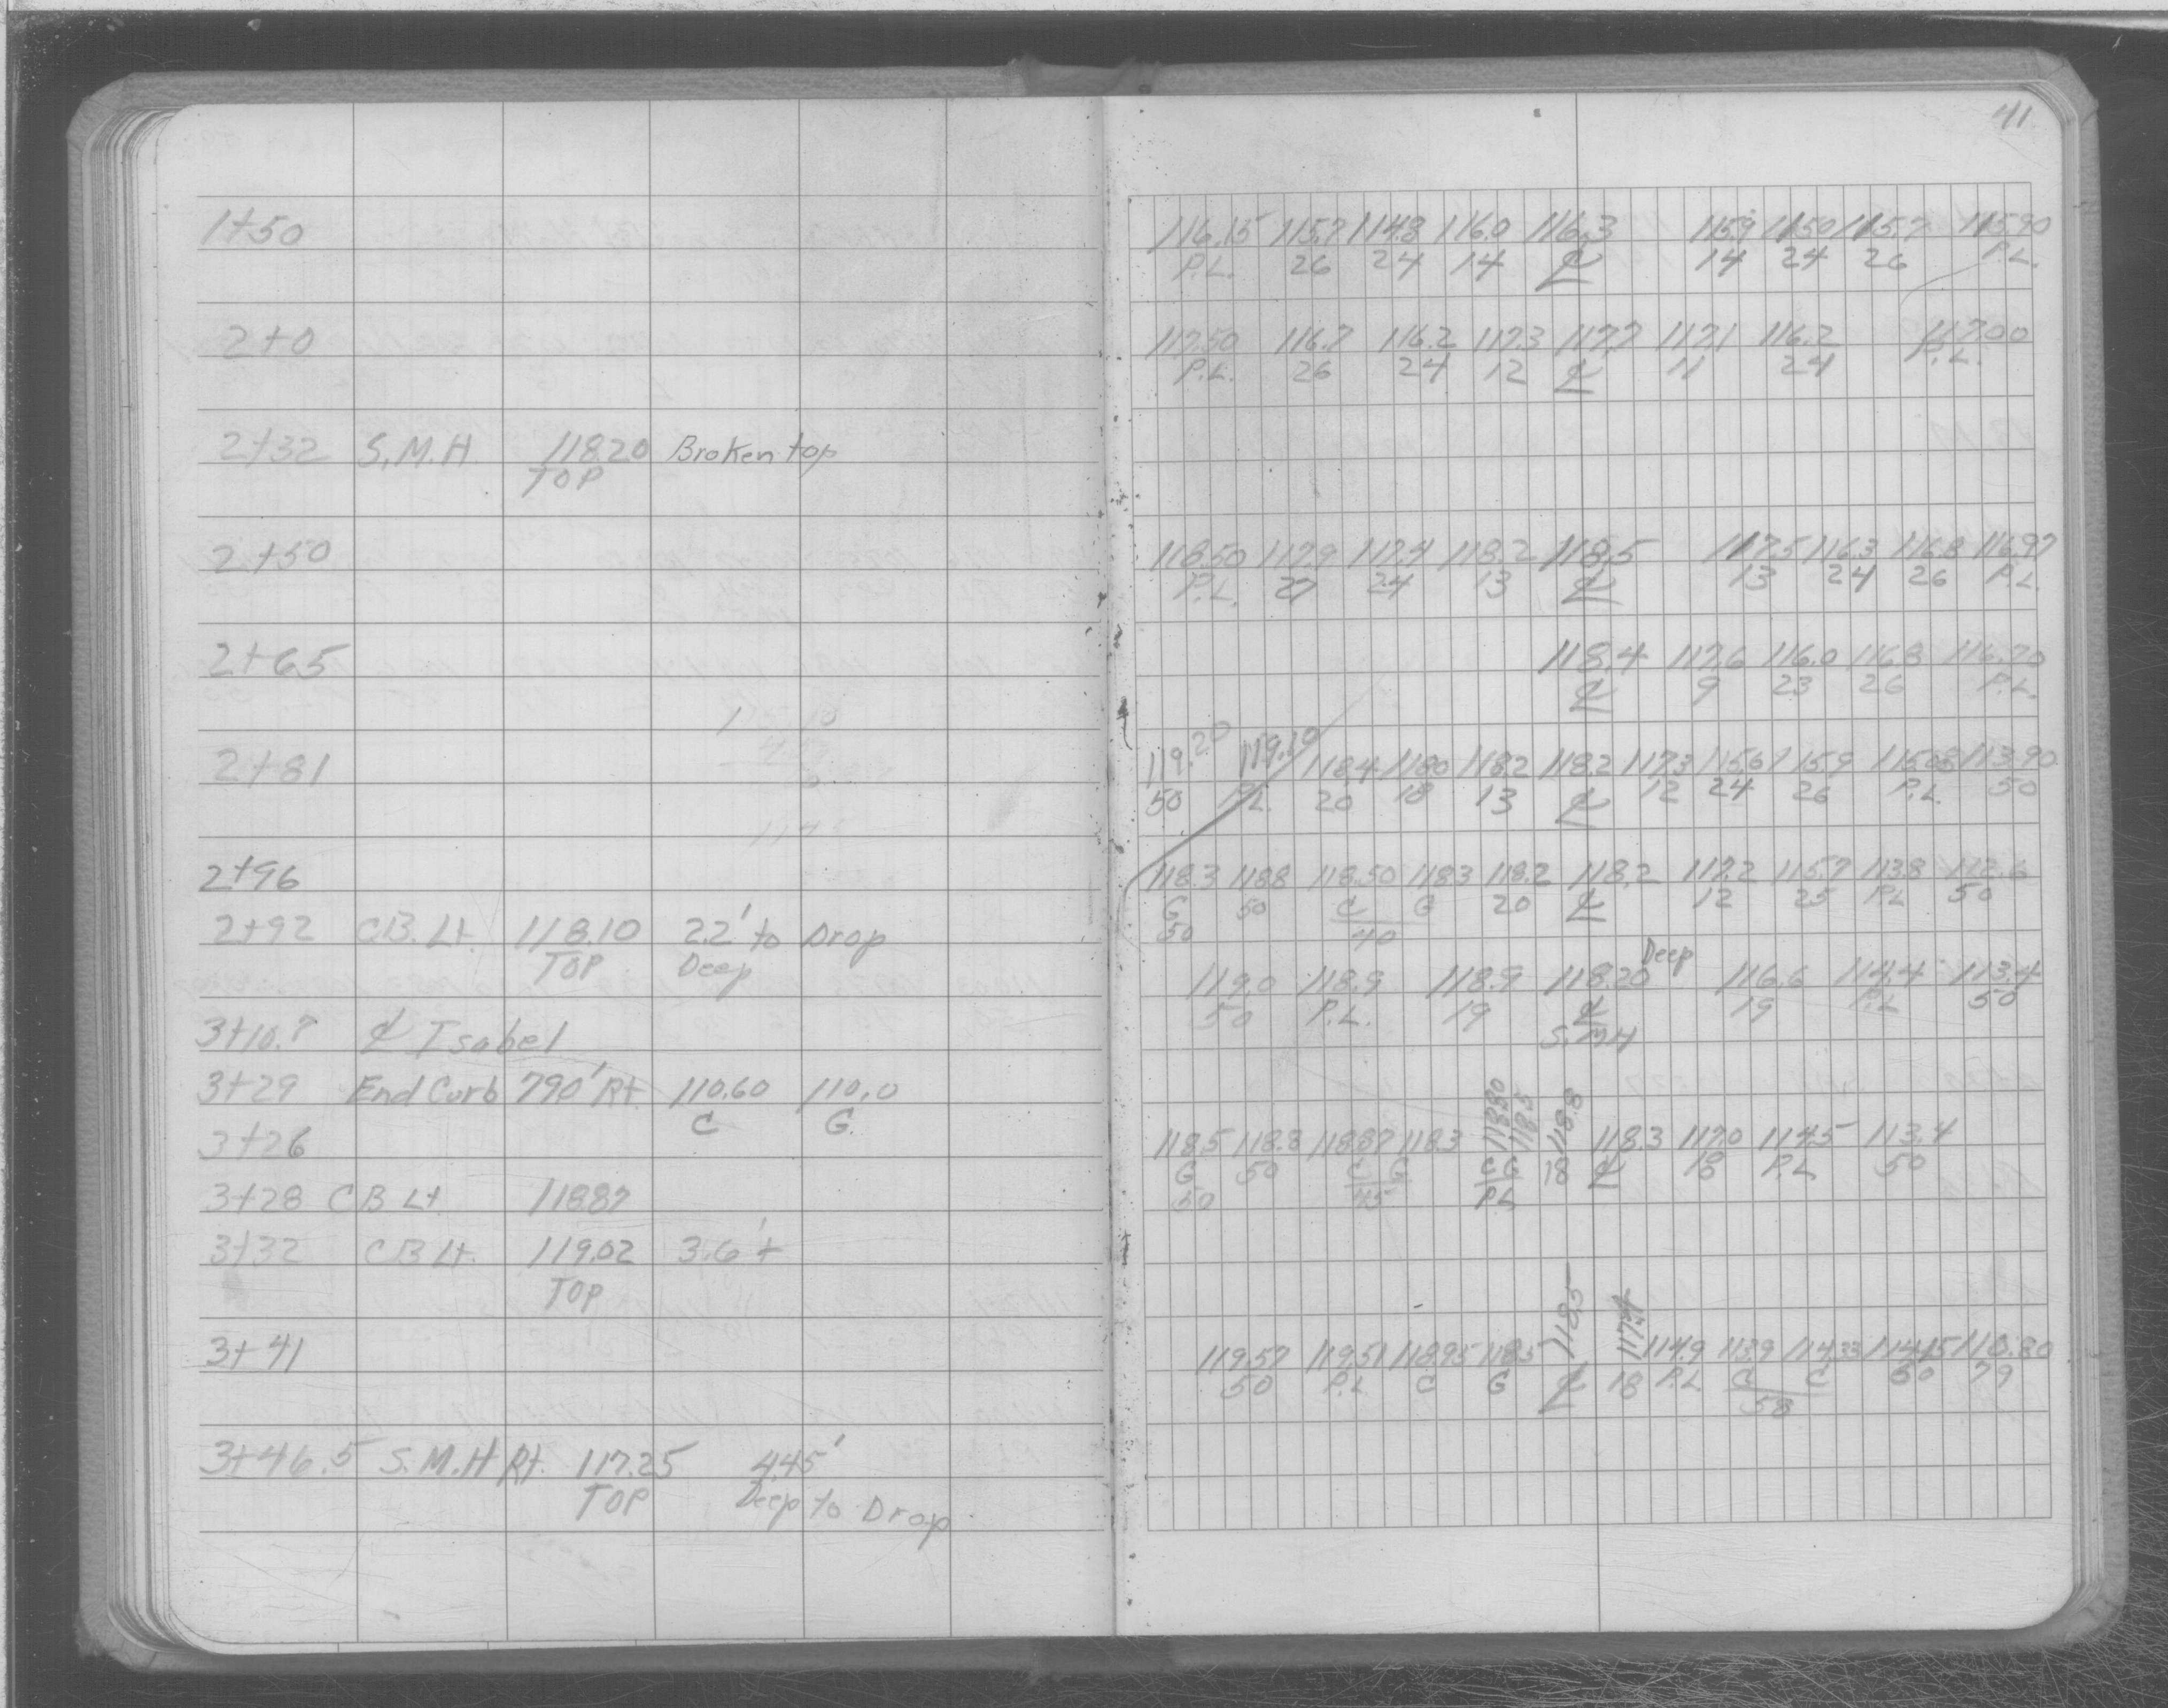 41
1+50
116.15 115.7 114.8 116.0 116.3 115.9 115.0 115.7 115.90
P.L. 26 24 14 ℄ 14 24 26 P.L.
2+0
117.50 116.7 116.2 117.3 117.7 117.1 116.2 117.00
P.L. 26 24 12 ℄ 11 24 P.L.
2+32 S.M.H. 118.20 Broken top
TOP
2+50
118.50 117.9 117.4 118.2 118.5 117.5 116.3 116.8 116.97
P.L. 27 24 13 ℄ 13 24 26 P.L.
2+65
118.4 117.6 116.0 116.8 116.70
℄ 9 23 26 P.L.
2+81
119.20 119.10 118.4 118.0 118.2 118.2 117.3 115.6 115.9 113.90
50 P.L. 20 18 13 ℄ 12 24 26 P.L. 50
2+96
118.3 118.8 118.50 118.3 118.2 118.2 117.2 115.7 113.8 112.6
G 50 C G 20 ℄ 12 25 P.L. 50
50 40
2+92 C.B. Lt. 118.10 2.2' to Drop
TOP Deep
Deep
119.0 118.9 118.9 118.20 116.6 114.4 113.4
50 P.L. 19 ℄ 19 P.L 50
S.M.H
3+10.7 ℄ Isabel
3+29 End Curb 790' Rt. 110.60 110.0
C G.
3+26
118.5 118.8 118.87 118.3 118.80 118.5 118.8 118.3 117.0 114.5 113.4
G 50 C G C G 18 ℄ 18 P.L 50
50 45 P.L
3+28 C B Lt 118.87
3+32 C B Lt. 119.02 3.6' ±
TOP
3+41
119.57 119.51 118.95 118.5 118.5 117.4 114.9 113.9 114.33 114.45 110.80
50 P.L C G ℄ 18 P.L C C 60 79
58
3+46.5 S.M.H Rt. 117.25 4.45'
TOP Deep to Drop